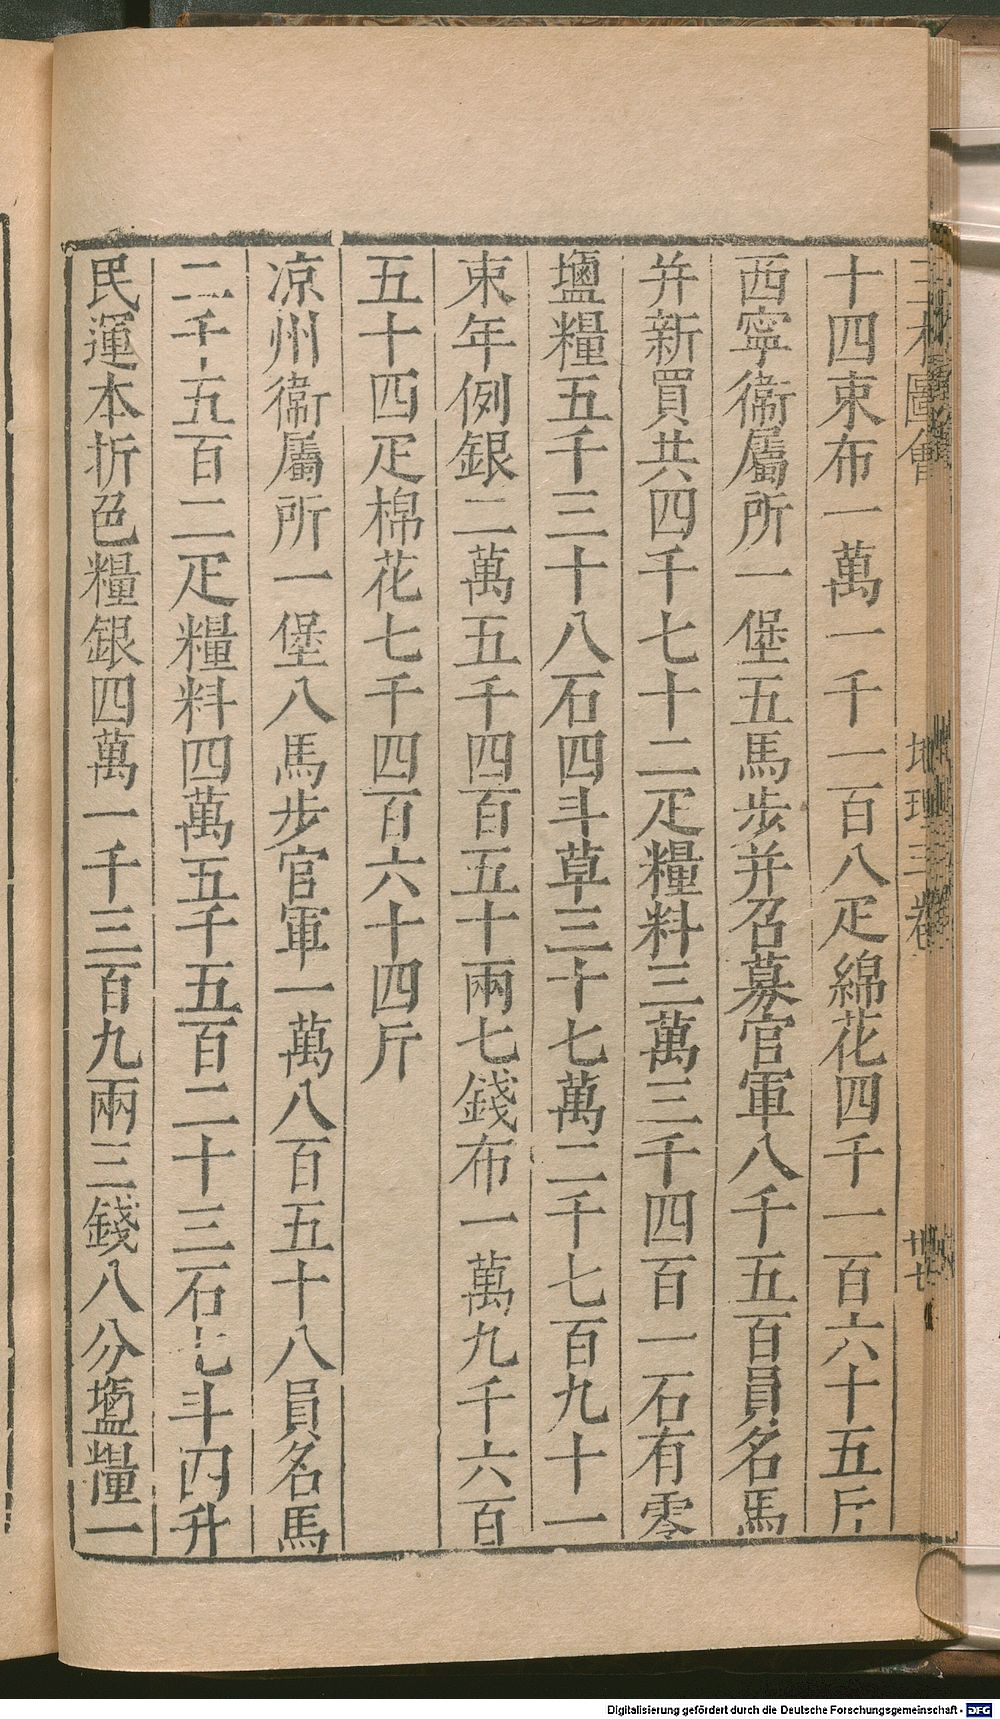 三才圖會 地理三卷 廿七
十四束布一萬一千一百八疋綿花四千一百六十五斤
西寧衛屬所一堡五馬步并召募官軍八千五百員名馬
并新買共四千七十二疋糧料三萬三千四百一石有零
鹽糧五千三十八石四斗草三十七萬二千七百九十一
束年例銀二萬五千四百五十兩七錢布一萬九千六百
五十四疋棉花七千四百六十四斤
凉州衛屬所一堡八馬步官軍一萬八百五十八員名馬
二千五百二疋糧料四萬五千五百二十三石七斗四升
民運本折色糧銀四萬一千三百九兩三錢八分塩糧一
Digitalisierung gefördert durch die Deutsche Forschungsgemeinschaft - DFG